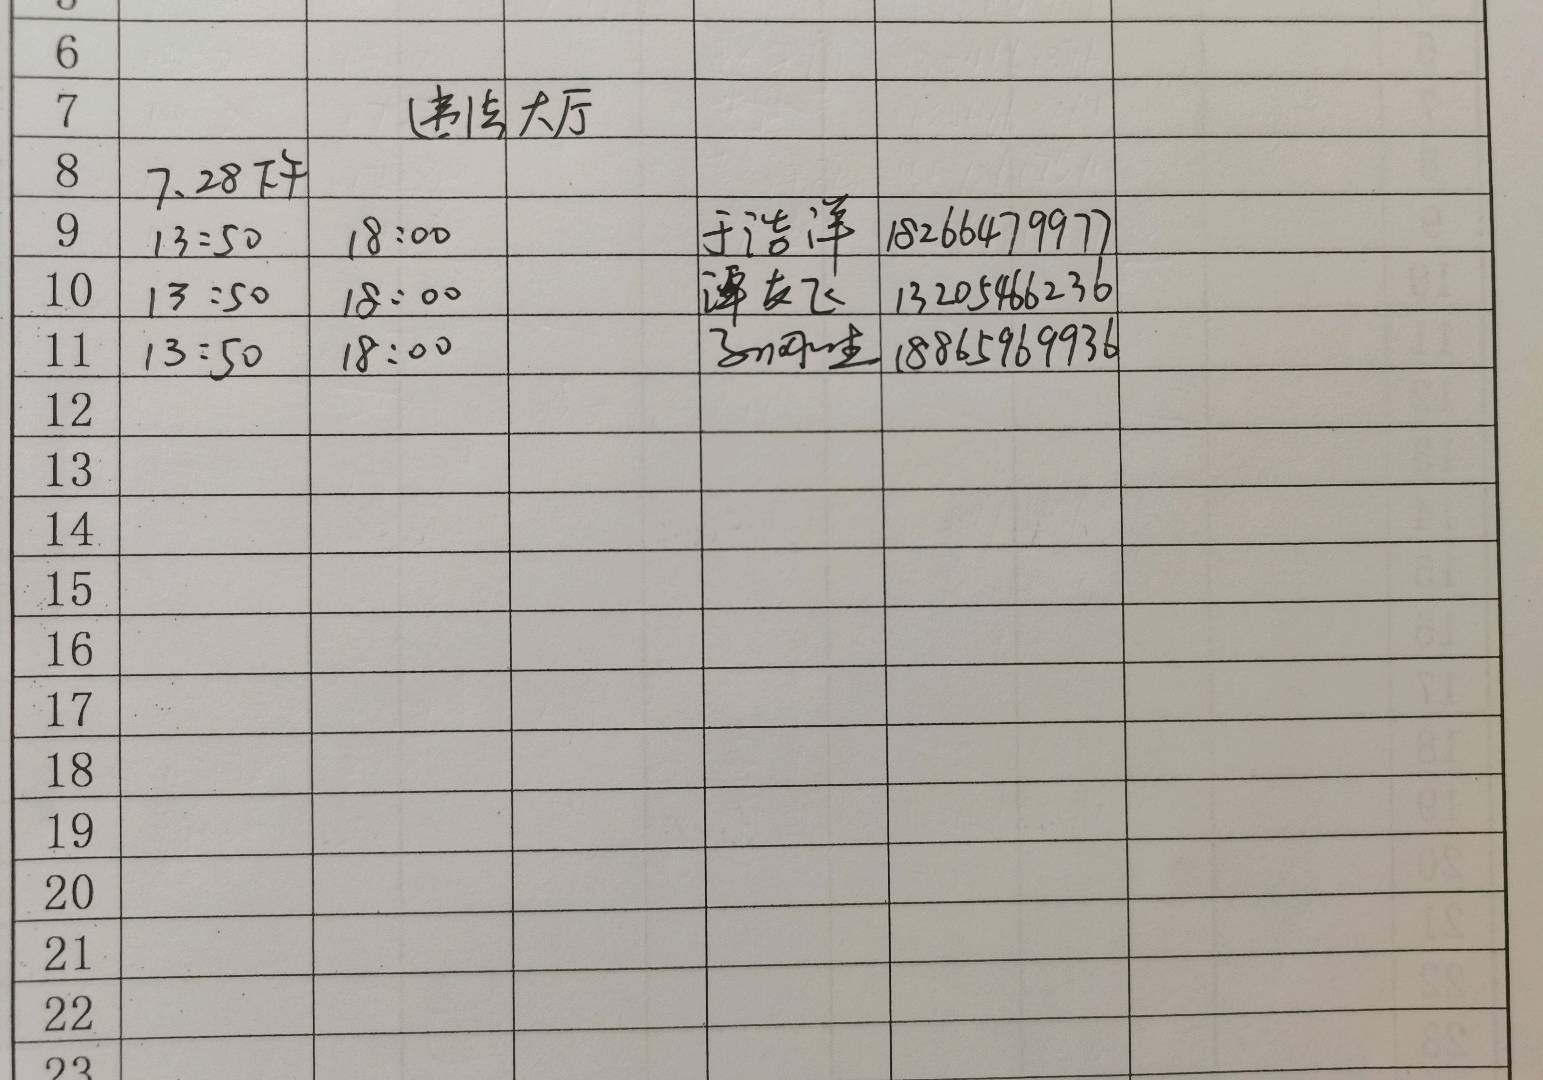 6
7 违法大厅
8 7.28下午
9 13:50 18:00 于浩洋 18266479977
10 13:50 18:00 谭友飞 13205466236
11 13:50 18:00 18865969936
12
13
14
15
16
17
18
19
20
21
22
23